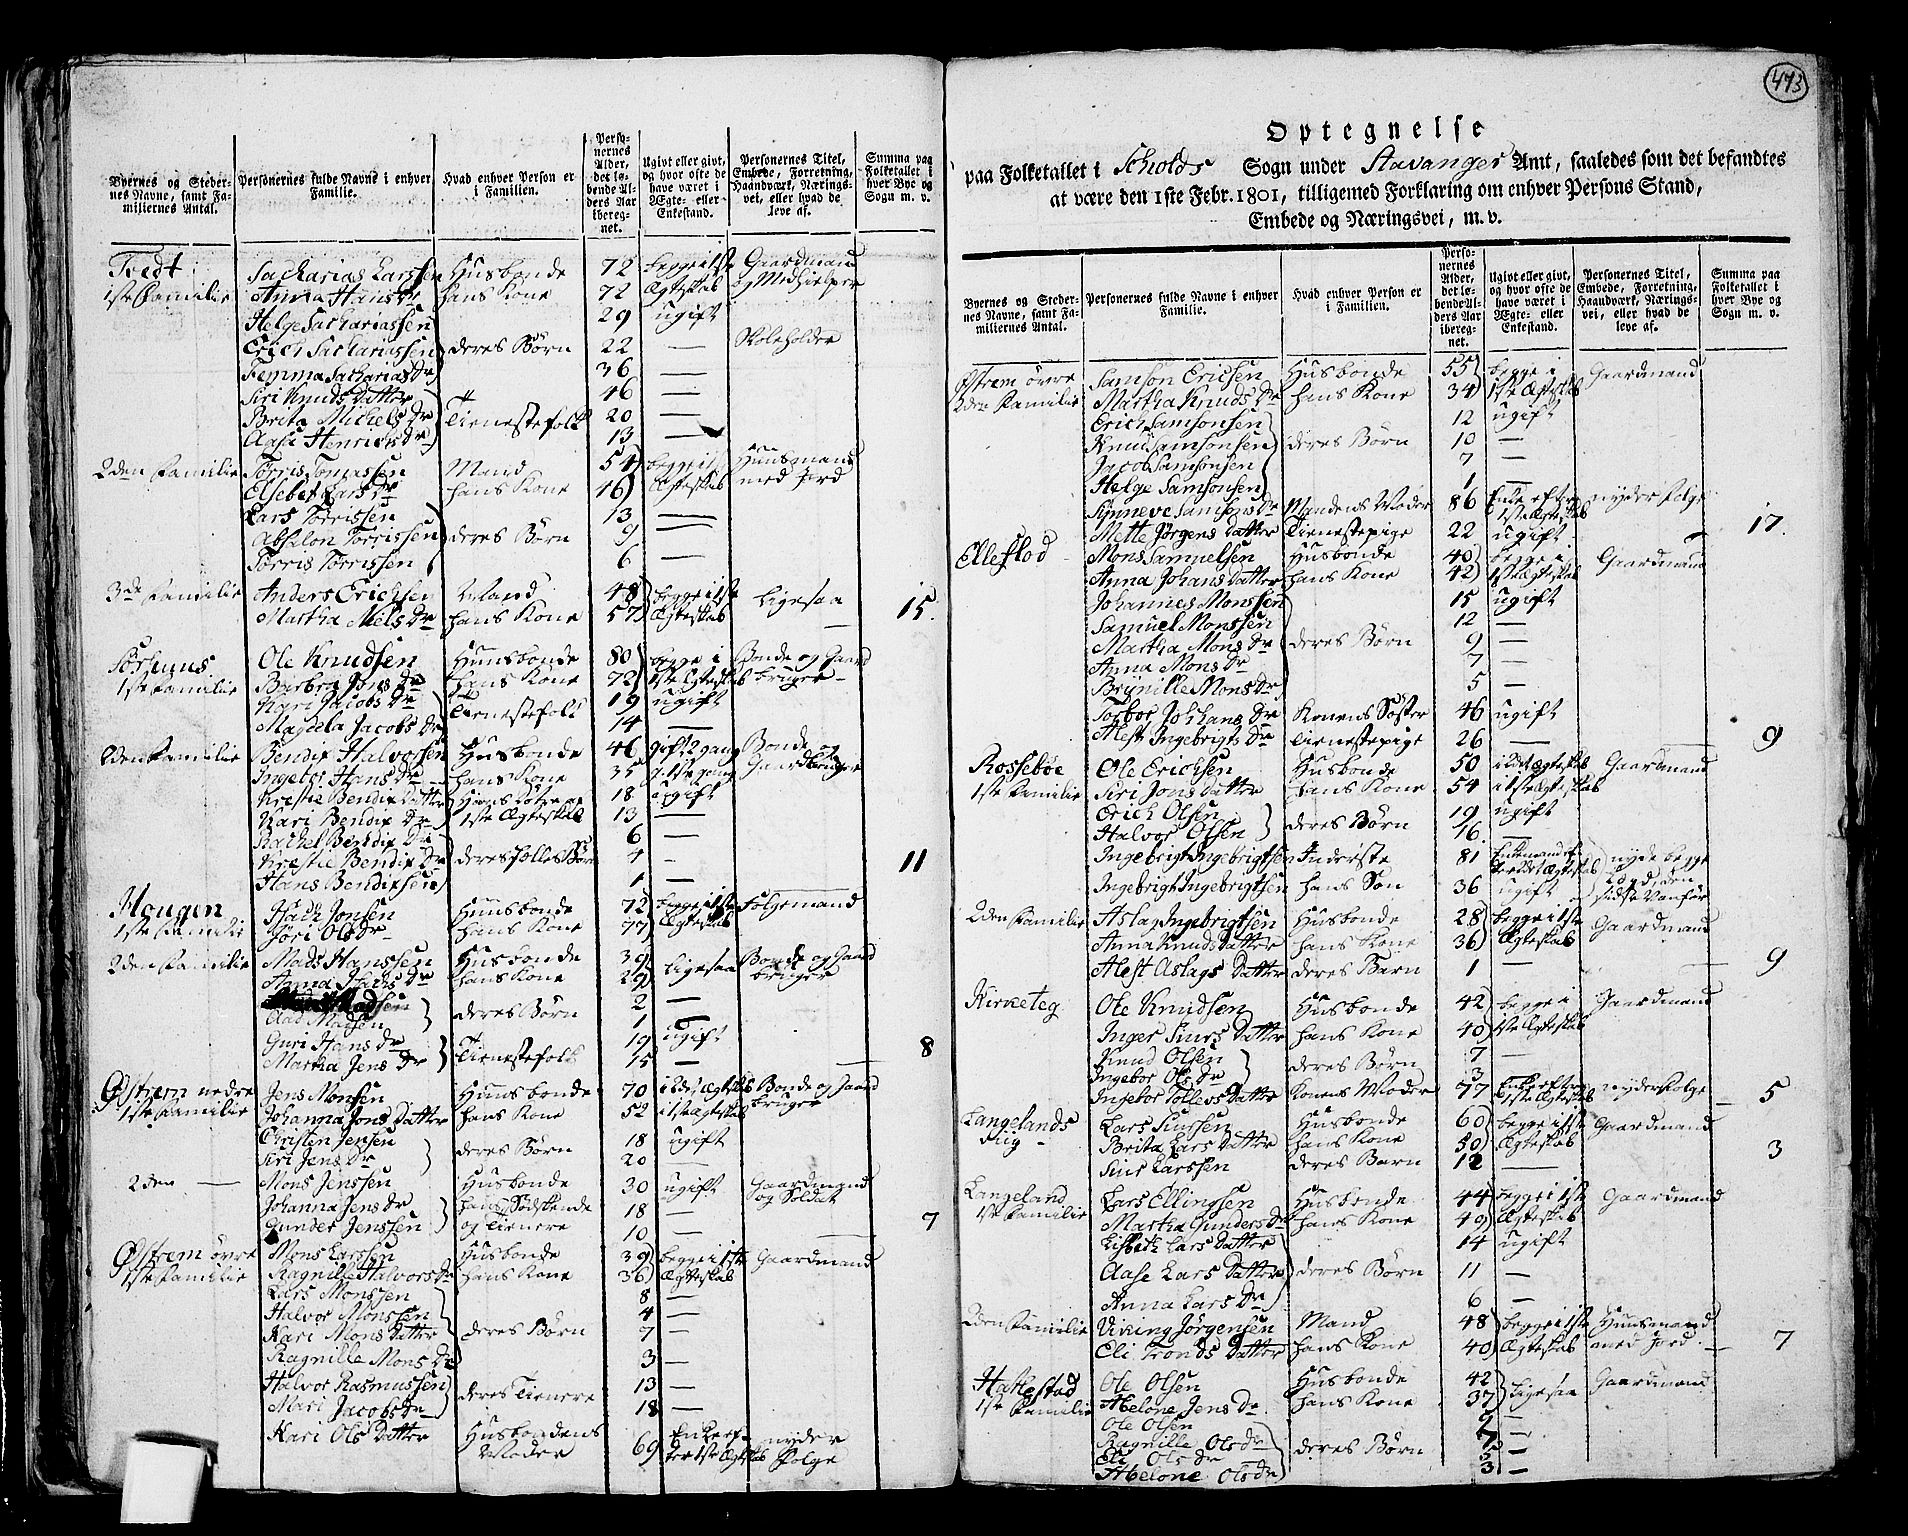 Byernes og Steder-
nes Navne, samt Fa-
miliernes Antal.
Personernes fulde Navne i enhver
Familie.
Hvad enhver Person er
i Familien.
Perso-
nernes
Alder,
det lø-
bende Al-
ders Aar
ibereg-
net.
Ugivt eller givt,
og hvor ofte de
have været i
Ægte- eller
Enkestand.
Personernes Titel,
Embede, Forretning,
Haandværk, Nærings-
vei, eller hvad de
leve af.
Summa paa
Folketallet i
hver Bye og
Sogn m. v.
Tvedt Sacharias Larssen Husbonde 72 begge i 1ste Gaardmand
1ste Familie Anna Hans Dr hans Kone 72 Ægteskab og Medhielper
Helge Sachariassen 29 ugift
Erich Sachariassen deres Børn 22 — Skoleholder
Femma Sacharias Dr 36 —
Siri Knuds Datter 46 —
Brita Michels Dr Tienestefolk 20 —
Aase Henrichs Dr 13 —
2den Familie Torris Tomassen Mand 54 begge i 1ste Huusmand
Elsebet Lars Dr hans Kone 46 Ægteskab med Jord
Lars Torrissen 13 —
Absalon Torrissen deres Børn 9 —
Torris Torrissen 6 —
3de Familie Anders Erichsen Mand 48 begge i 1ste
Martha Niels Dr hans Kone 57 Ægteskab Ligesaa 15.
Ole Knudsen Huusbonde 80 begge i Bonde og Gaard
1ste Familie Barbra Jons Dr hans Kone 72 1ste Ægteskab bruger
Kari Jacobs Dr Tienestefolk 19 ugift
Magdela Jacobs Dr 14 —
2den Familie Bendix Halvorsen Husbonde 46 gift 2 gang Bonde og
Ingebor Hans Dr hans Kone 35 g. 1ste gang Gaardbruger
Krestie Bendix Datter 18 ugift
Kari Bendix Dr 1ste Ægteskab 13 —
Rachel Bendix Dr 6 —
Krestie Bendix Dr deres fælles Børn 4 —
Hans Bendixsen 1 — 11
Hougen Isach Jonsen Huusbonde 72 begge i 1ste Folgemand
1ste Familie Jøri Ols Dr hans Kone 77 Ægteskab
2den Familie Mads Hanssen Husbonde 39 Ligesaa Bonde og Gaard
Anna Isachs Dr hans Kone 29 bruger
Madsen deres Børn 2 —
Aad Madsen 1 —
Guri Hans Dr Tienestefolk 19 ugift
Martha Jens Dr 15 — 8
Østrem nedre Jens Monsen Huusbonde 70 i 2det Ægteskab Bonde og Gaard
1ste Familie Johanna Jons Datter hans Kone 52 i 1ste Ægteskab bruger
Christen Jensen deres Børn 18 ugift
Siri Jens Dr 20 —
2den — Mons Jenssen Husbonde 30 ugift Gaardmand
Johanna Jens Dr hans Sødskende 18 — og Soldat
Gunder Jenssen og Tienere 10 — 7
Østrem øvre Mons Larssen Husbonde 39 begge i 1ste Gaardmand
1ste Familie Ragnille Halvors Dr hans Kone 36 Ægteskab
Lars Monssen 8 —
Halvor Monssen 4 —
Kari Mons Datter deres Børn 7 —
Ragnille Mons Dr 3 —
Halvor Rasmussen 13 —
Mari Jacobs Dr deres Tienere 18 —
Kari Ols Datter Husbondens 69 Enke ef- nyder
Moder ter 1ste Ægteskab Folge
473
Optegnelse
paa Folketallet i Scholds Sogn under Stavanger Amt, saaledes som det befandtes
at være den 1ste Febr. 1801, tilligemed Forklaring om enhver Persons Stand,
Embede og Næringsvei, m. v.
Byernes og Steder-
nes Navne, samt Fa-
miliernes Antal.
Personernes fulde Navne i enhver
Familie.
Hvad enhver Person er
i Familien.
Perso-
nernes
Alder,
det lø-
bende Al-
ders Aar
ibereg-
net.
Ugivt eller givt,
og hvor ofte de
have været i
Ægte- eller
Enkestand.
Personernes Titel,
Embede, Forretning,
Haandværk, Nærings-
vei, eller hvad de
leve af.
Summa paa
Folketallet i
hver Bye og
Sogn m. v.
Østrem øvre Samson Ericsen Husbonde 55 begge i Gaardmand
2den Familie Martha Knuds Dr hans Kone 34 1ste Ægteskab
Erich Samsonsen 12 ugift
Knud Samsonsen deres Børn 10 —
Jacob Samsonsen 7 —
Helge Samsonsen 1 —
Sÿnneve Samsons Dr Mandens Moder 86 Enke efter nyder Folge
1ste Ægteskab
Mette Jørgens Datter Tienestepige 22 ugift 17.
Ellestad Mons Samuelsen Husbonde 40 begge i Gaardmand
Anna Johans Datter hans Kone 42 1ste Ægteskab
Johannes Monssen 15 ugift
Samuel Monssen 12 —
Martha Mons Dr deres Børn 9 —
Anna Mons Dr 7 —
Brÿnille Mons Dr 5 —
Torbor Johans Dr Konens Søster 46 ugift
Alest Ingebrigts Dr Tienestepige 26 — 9
Rossebøe Ole Erichsen Husbonde 50 i 2det Ægteskab Gaardmand
1ste Familie Siri Jons Datter hans Kone 54 i 1ste Ægteskab
Erich Olsen deres Børn 19 ugift
Halvor Olsen 16 —
Ingebrigt Ingebrigtsen Inderste 81 Enkemand ef- nyde begge
ter 1ste Ægteskab Lægd, den
Ingebrigt Ingebrigtsen hans Søn 36 ugift sidste Vanfør
2den Familie Aslag Ingebrigtsen Husbonde 28 begge i 1ste Gaardmand
Anna Knuds Datter hans Kone 36 Ægteskab
Alest Aslags Datter deres Barn 1 — 9
Kirketeg Ole Knudsen Husbonde 42 begge i Gaardmand
Inger Siurs Datter hans Kone 40 1ste Ægteskab
Knud Olsen deres Børn 7 —
Ingebor Ols Dr 3
Ingebor Tollevs Datter Konens Moder 77 Enke efter nyder Folge 5
1ste Ægteskab
Langelands Lars Siursen Husbonde 60 begge i 1ste Gaardmand
Brita Lars Datter hans Kone 50 Ægteskab
Siur Larssen deres Barn 12 — 3
Langeland Lars Ellingsen Husbonde 44 begge i 1ste Gaardmand
1ste Familie Martha Gunders Dr hans Kone 49 Ægteskab
Lisbeth Lars Datter 14 ugift
Aase Lars Datter deres Børn 11 —
Anna Lars Dr 6 —
2den Familie Viking Jørgensen Mand 48 begge i 1ste Huusmand
Eli Tronds Datter hans Kone 40 Ægteskab med Jord. 7
Hattestad Ole Olsen Husbonde 42 Ligesaa Gaardmand
1ste Familie Abelone Jens Dr hans Kone 37
Ole Olsen 9 —
Ragnille Ols Dr deres Børn 7 —
Eli Ols Dr 5 —
Abelone Ols Dr 3 —